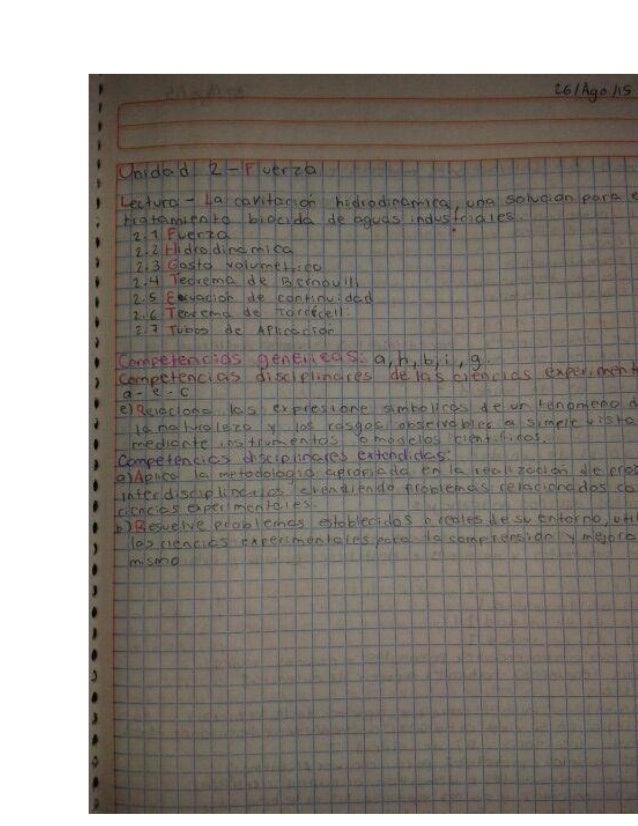 26/Ago/15
Unidad 2-Fuerza
Lectura - La cavitación hidrodinámica, una solución para e
tratamiento biocida de aguas industriales.
2.1 Fuerza
2.2 Hidrodinamica
2.3 Gasto volumetrico
2.4 Teorema de Bernoulli
2.5 Ecuacion de continuidad
2.6 Teorema de Torricell
2.7 Tubos de Aplicación
Competencias genericas: a, h, b, i, g.
Competencias disciplinares de las ciencias experiment
a - e - c
e) Relaciona las expresione simbolicas de un fenomeno d
la naturaleza y los rasgos observables a simple vista
mediante instrumentos o modelos cientificos.
Competencias disciplinares extendidas:
a) Aplica la metodologia apropiada en la realización de proy
interdisciplinarios problemas relacionados co
ciencias experimentales.
b) Resuelve problemas establecidos o reales de su entorno, util
las ciencias experimentales para la comprension y mejora
mismo